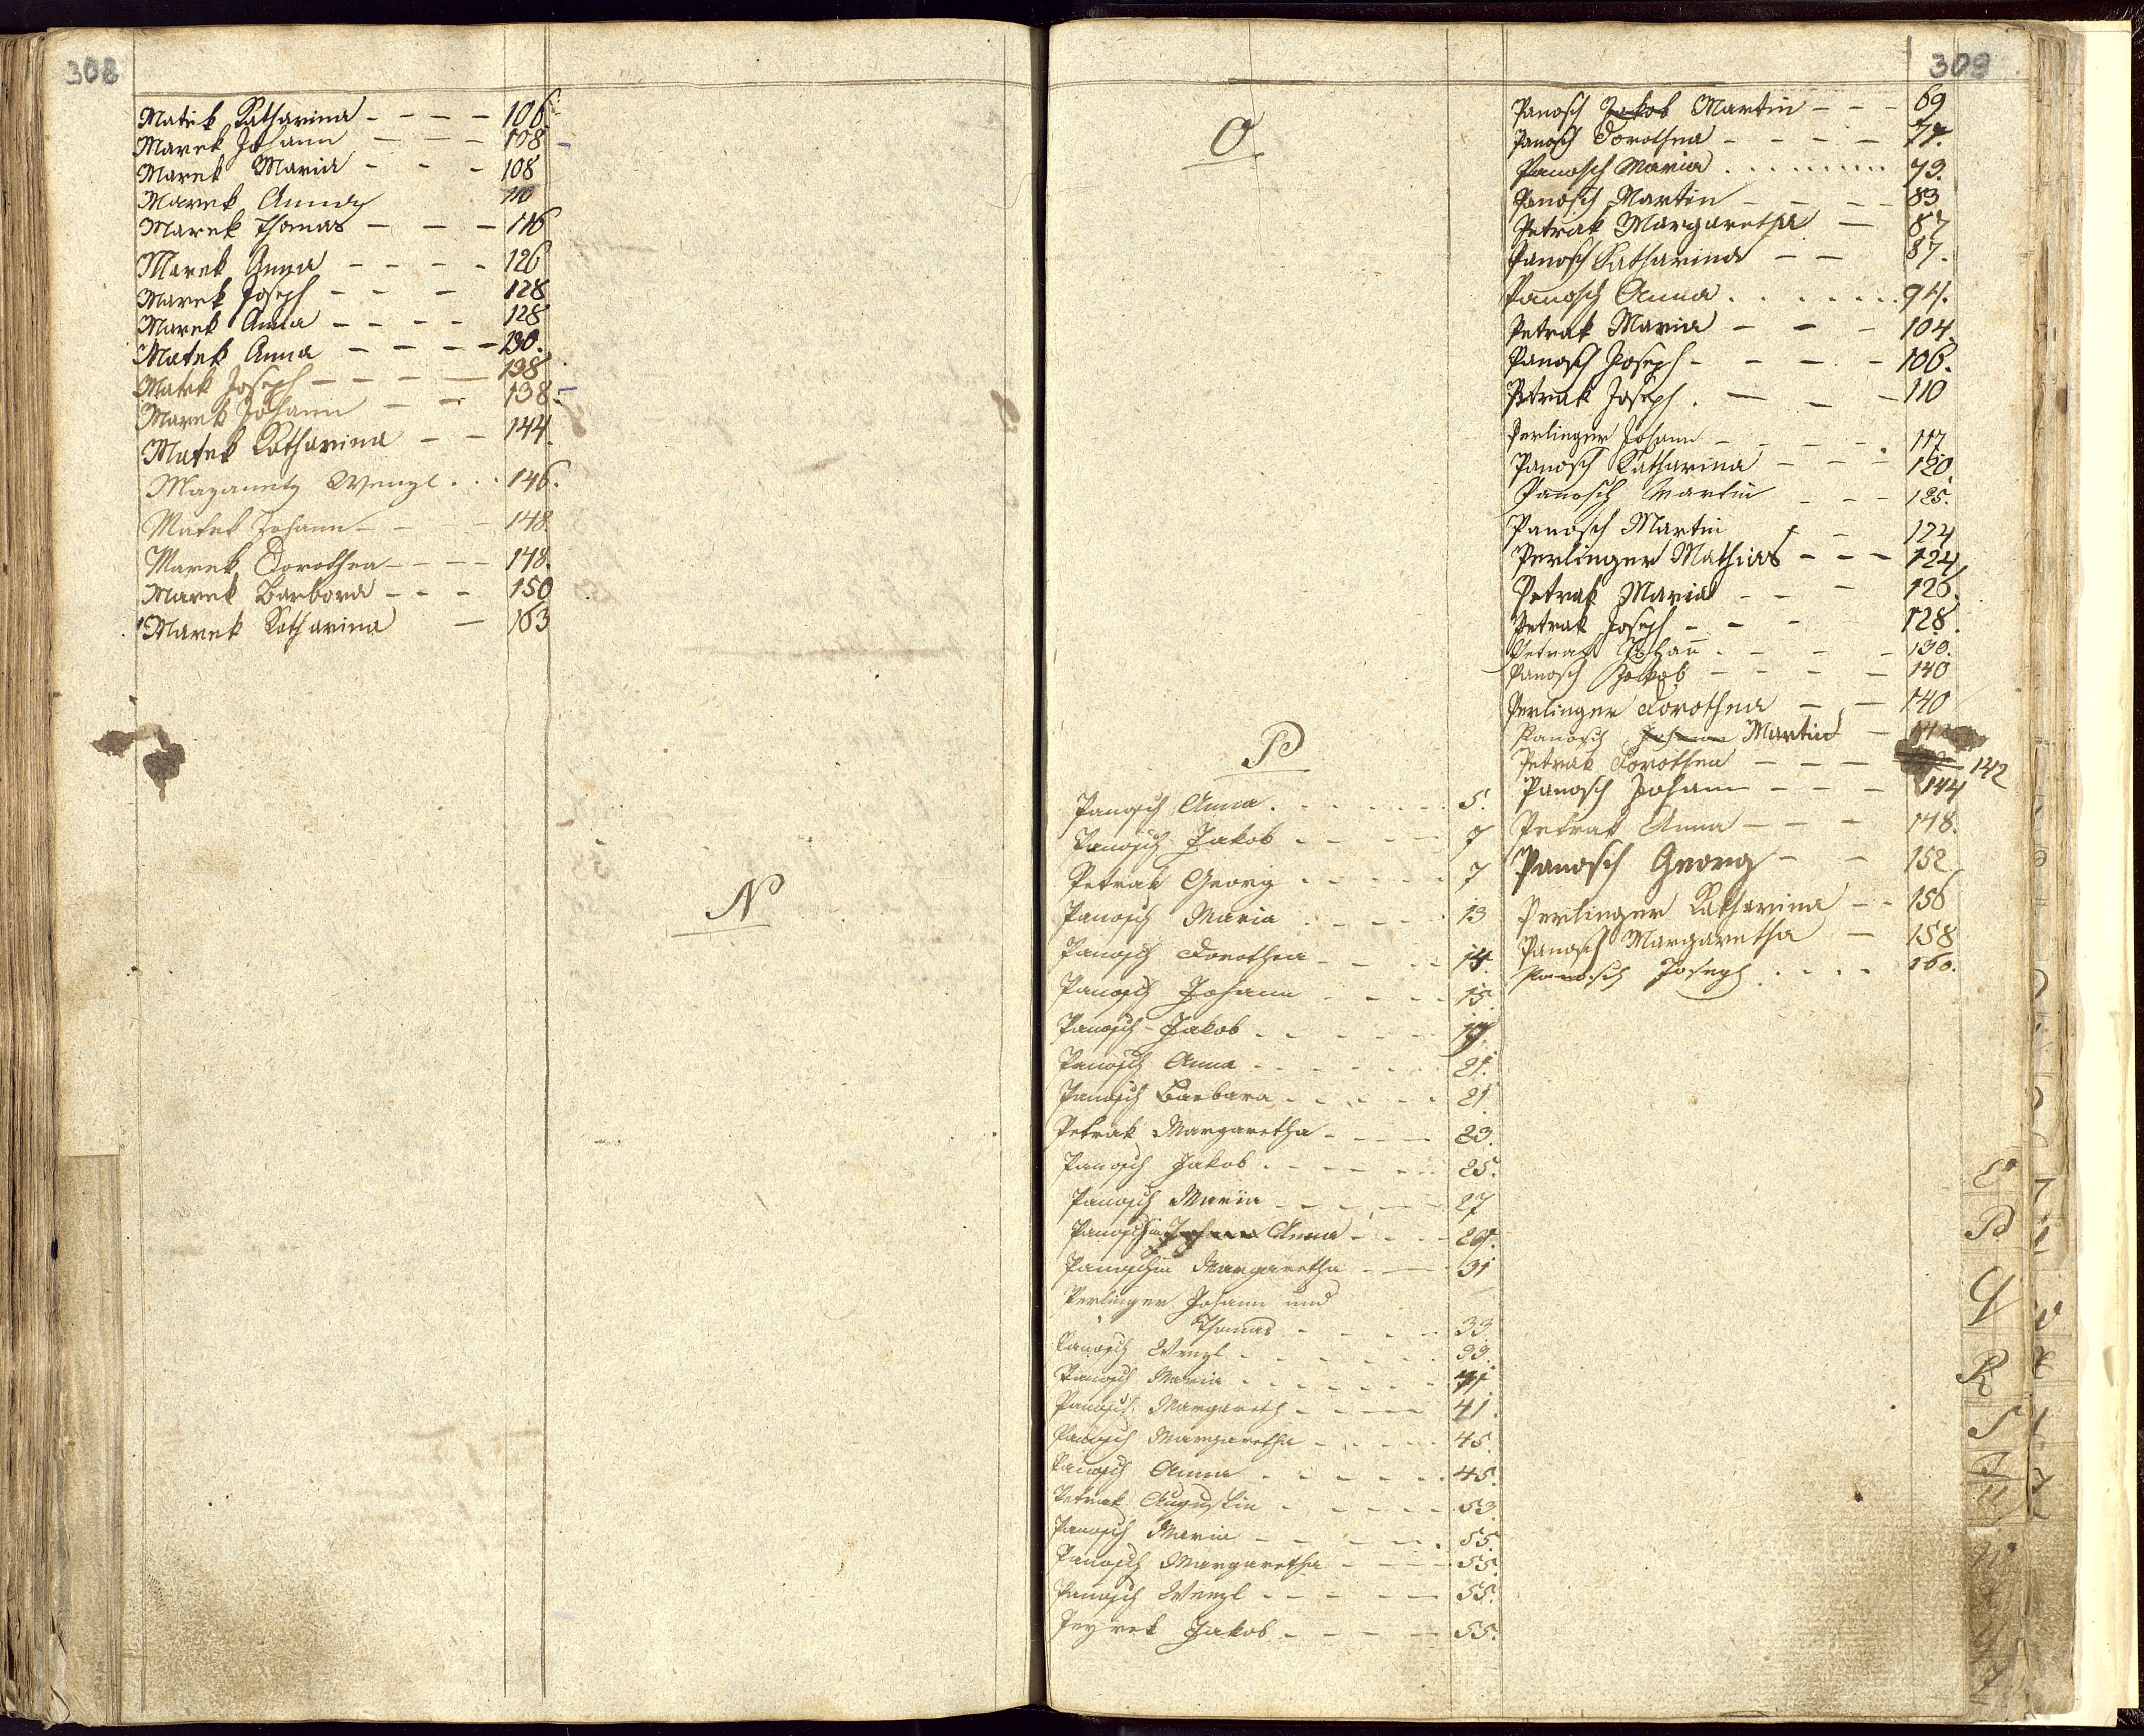 308
Matek Katharina - - - - 106
Marek Johann - - - 108
Marek Maria - - - 108
Marek Anna 110
Marek Thomas - - - 116
Marek Anna - - - - 126
Marek Joseph - - - 128
Marek Anna - - - - 128
Matek Anna - - - - 130.
Matek Joseph - - - - 138
Marek Johann - - 138.
Matek Katharina - - 144
Mazanetz Wenzl . . . 146.
Matek Johann - - - 148.
Marek Dorothea - - - - 148.
Marek Barbora - - - 150
Marek Katharina - 163
N
309
O
P
Panosch Anna . - - - - - 5.
Panosch Jakob - - - - 7
Petrak Georg - - - - - 7
Panosch Maria - - - - 13
Panosch Dorothea - - - - 14.
Panosch Johann - - - - 15
Panosch Jakob - - - - - 17.
Panosch Anna - - - - - - 21.
Panosch Barbara - - - - - 21
Petrak Margaretha - - - - 23.
Panosch Jakob - - - - - 25.
Panosch Maria - - - - - 27
Panoschin Anna - - - - 29.
Panoschin Margaretha - - - 31
Perlinger Johann und
Thomas - - - - 33
Panosch Wenzl - - - - - - 39.
Panosch Maria - - - - - - 41
Panosch Margareth - - - - - 41.
Panosch Margaretha - - - - - 45.
Panosch Anna - - - - - - 45.
Petrak Augustin - - - - - 53
Panosch Maria - - - - - 55.
Panosch Margaretha - - - - 55.
Panosch Wenzl - - - - - - 55.
Jakob - - - - - 55.
Panosch Jakob Martin - - - 69
Panosch Dorothea - - - - 77.
Panosch Maria . . . . . . . . . 79.
Panosch Martin - - - - 83
Petrak Margaretha - 87
Panosch Katharina - - 87.
Panosch Anna . . . . . . . 94.
Petrak Maria - - - 104.
Panosch Joseph - - - - - 106.
Petrak Joseph . - - - 110
Perlinger Johann - - - - - 117.
Panosch Katharina - - - 120
Panosch Martin - - - 125.
Panosch Martin - - 124
Perlinger Mathias - - - 124
Petrak Maria - - - 126.
Petrak Joseph - - - 128.
Petrak Johann - - - - 130.
Panosch Jakob - - - - - 140
Perlinger Dorothea - - 140
Panosch Johann Martin - 142
Petrak Dorothea - - - 142
Panosch Johann - - - 144
Petrak Anna - - - 148.
Panosch Georg - - 152
Perlinger Katharina - - 156
Panosch Margaretha - 158
Panosch Joseph . . . . 160.
P
Q
R
S